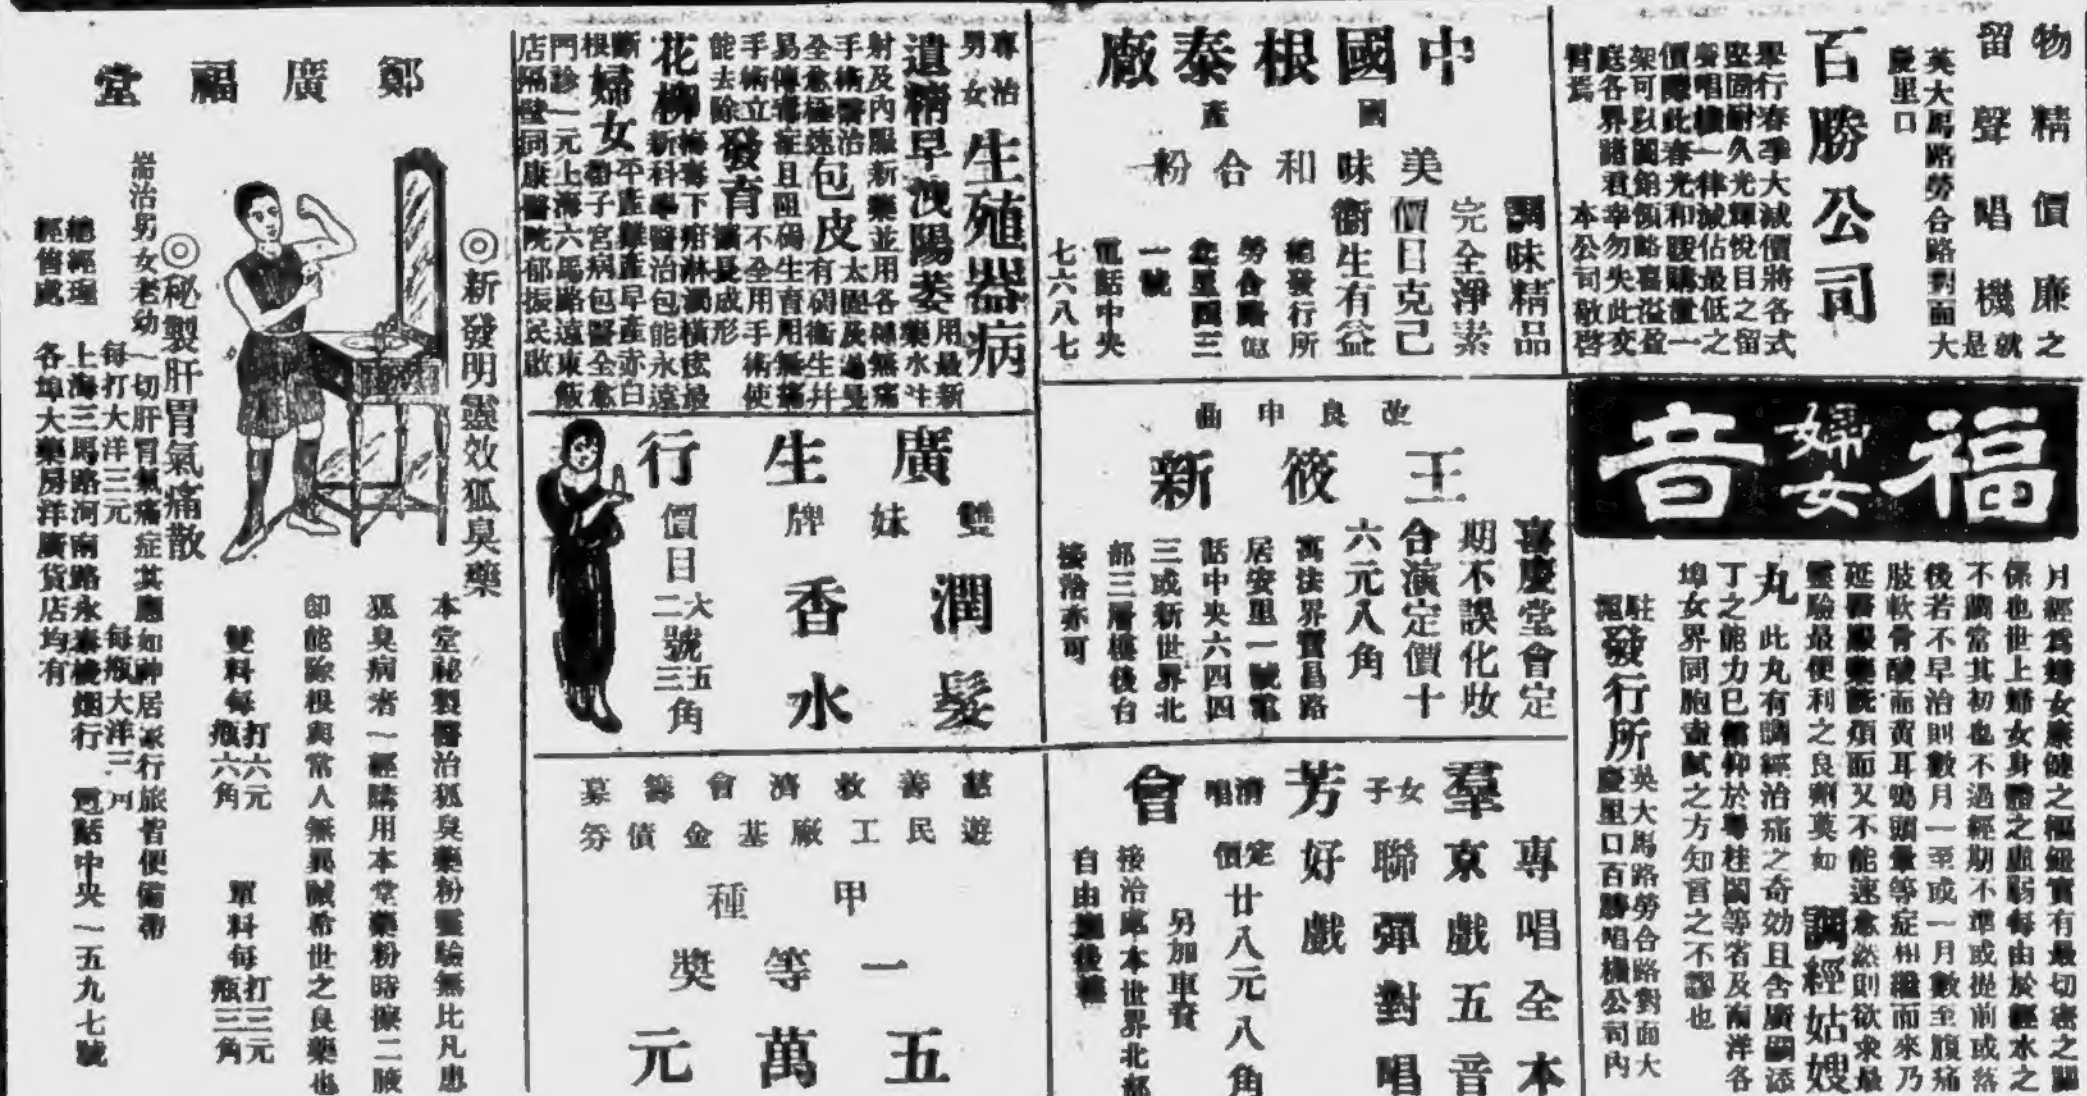 物精價廉之
留聲唱機就是
英大馬路勞合路對面大
慶里口
百勝公司
舉行春季大減價將各式
堅固耐久光輝悅目之留
聲唱機一律減佔最低之
價際此春光和暖購置一
架可以闔館領略喜溢盈
庭各界諸君幸勿失此交
臂焉 本公司敬啓
福婦女音
月經爲婦女康健之樞紐實有最切密之關
係也世上婦女身體之虛弱每由於經水之
不調當其初也不過經期不準或提前或落
後若不早治則數月一至或一月數至腹痛
肢軟骨酸面黄耳鳴頭暈等症相繼而來乃
延醫服藥既煩而又不能速愈然則欲求最
靈驗最便利之良劑莫如 調經姑嫂
丸 此丸有調經治痛之奇効且含廣嗣添
丁之能力已信仰於粵桂閩等省及南洋各
埠女界同胞壹試之方知言之不謬也
駐滬發行所 英大馬路勞合路對面大
慶里口百勝唱機公司內
中國根泰廠
國產
美味和合粉
調味精品
完全淨素
價目克己
衞生有益
總發行所
勞合路
一號
電話中央
七六八七
改良申曲
王筱新
喜慶堂會定
期不誤化妝
合演定價十
六元八角
寓法界寶昌路
居安里一號電
話中央六四四
三或新世界北
部三層樓後台
接洽亦可
羣芳會
女子
清唱
專唱全本
京戲五音
聯彈對唱
好戲
定價廿八元八角
另加車資
接洽處本世界北部
自由廳後樓
專治
男女
生殖器病
遺精早洩陽萎 用最新
藥水注
射及內服新藥並用各種無痛
手術醫治 包皮 太固及過長
全愈極速 有碍衞生幷
易傳毒症且阻碍生育用無痛
手術立 發育 不全用手術使
能去除 成形
花柳 梅毒下疳淋濁橫痃最
新科學醫治包能永遠
斷根 婦女 不產難產早產赤白
帶子宮病包醫全愈
門診一元上海六馬路遠東飯
店隔壁同康醫院郁振民啟
廣生行
雙妹牌
潤髮
香水
價目 大號五角
二號三角
慈善救濟會籌募
遊民工廠基金債券
甲種
一等獎
五萬元
鄭廣福堂
◎新發明靈效狐臭藥
本堂祕製醫治狐臭藥粉靈驗無比凡患
狐臭病者一經購用本堂藥粉時擦二腋
卽能除根與常人無異誠希世之良藥也
雙料每 打六元
瓶六角
單料每 打三元
瓶三角
◎秘製肝胃氣痛散
耑治男女老幼一切肝胃氣痛症其應如神居家行旅皆便備帶
每打大洋三元 每瓶大洋三角
總經理 上海三馬路河南路永泰機烟行 電話中央一五九七號
經售處 各埠大藥房洋廣貨店均有